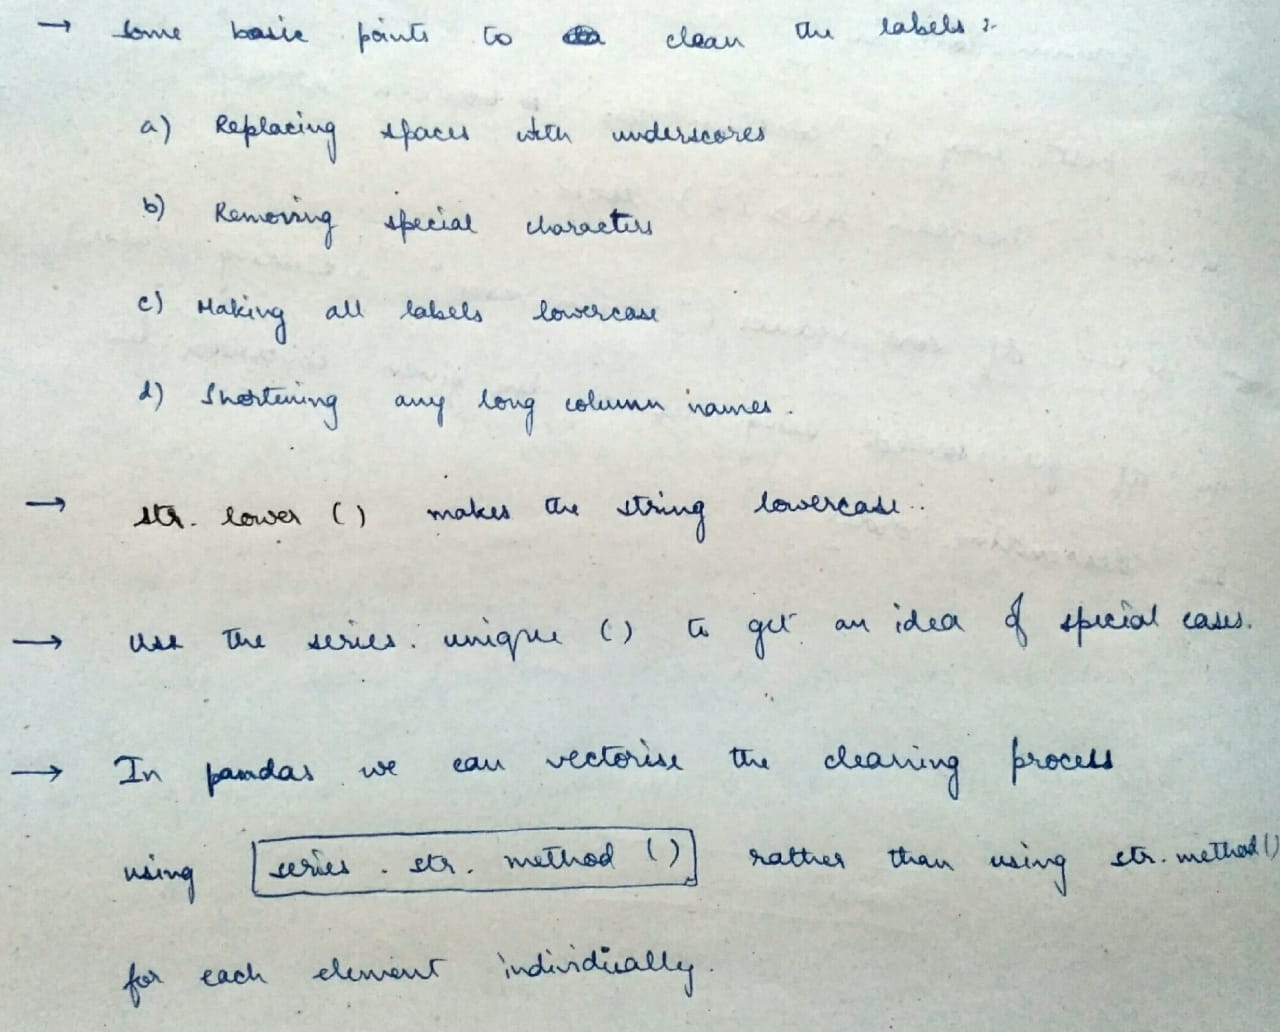 → Some basic points to clean the labels :-
a) Replacing spaces with underscores
b) Removing special characters
c) Making all labels lowercase
d) Shortening any long column names.
→ str. lower () makes the string lowercase..
→ Use the series. unique () to get an idea of special cases.
→ In pandas we can vectorise the cleaning process
using series . str. method () rather than using str. method()
for each element individually.